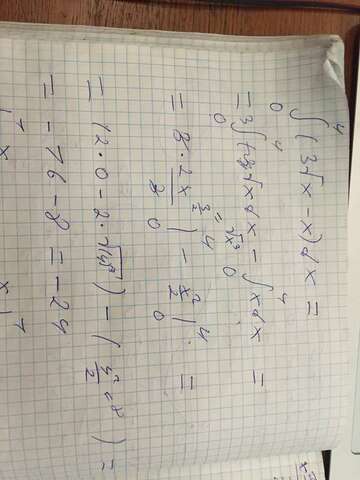 ∫₀⁴ (3√x - x)dx =
= 3∫₀⁴ √x dx - ∫₀⁴ x dx =
= 3 · 2x^(3/2)/3 |₀⁴ - x²/2 |₀⁴ =
= (2·0 - 2·√4³) - (4²/2 = 8) =
= -16 - 8 = -24